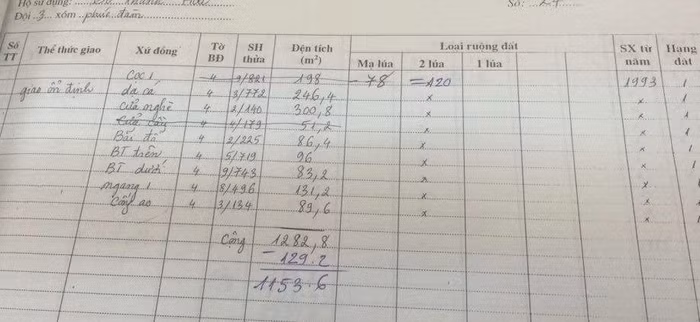 Hộ sử dụng:
Số: 24
Đội 3 xóm phúc đăm
Số TT Thể thức giao Xứ đồng Tờ BĐ SH thửa Dện tích (m²) Loại ruộng đất SX từ năm Hạng đất
Mạ lúa 2 lúa 1 lúa
Coc 1 4 9/821 198 - 78 = 120 1993 1
giao ổn định da cá 4 3/772 246,4 x x 1
cửa nghè 4 2/140 300,8 x x 1
Cửa Cầy 4 4/179 51,2 x x
Bãi đ 4 2/225 86,4 x x 1
BT trên 4 5/719 96 x x 1
BT dưới 4 9/743 83,2 x x 1
ngang 1 4 8/496 131,2 x x 1
Cây ao 4 3/134 89,6 x x 1
Cộng 1282,8
- 129.2
1153.6